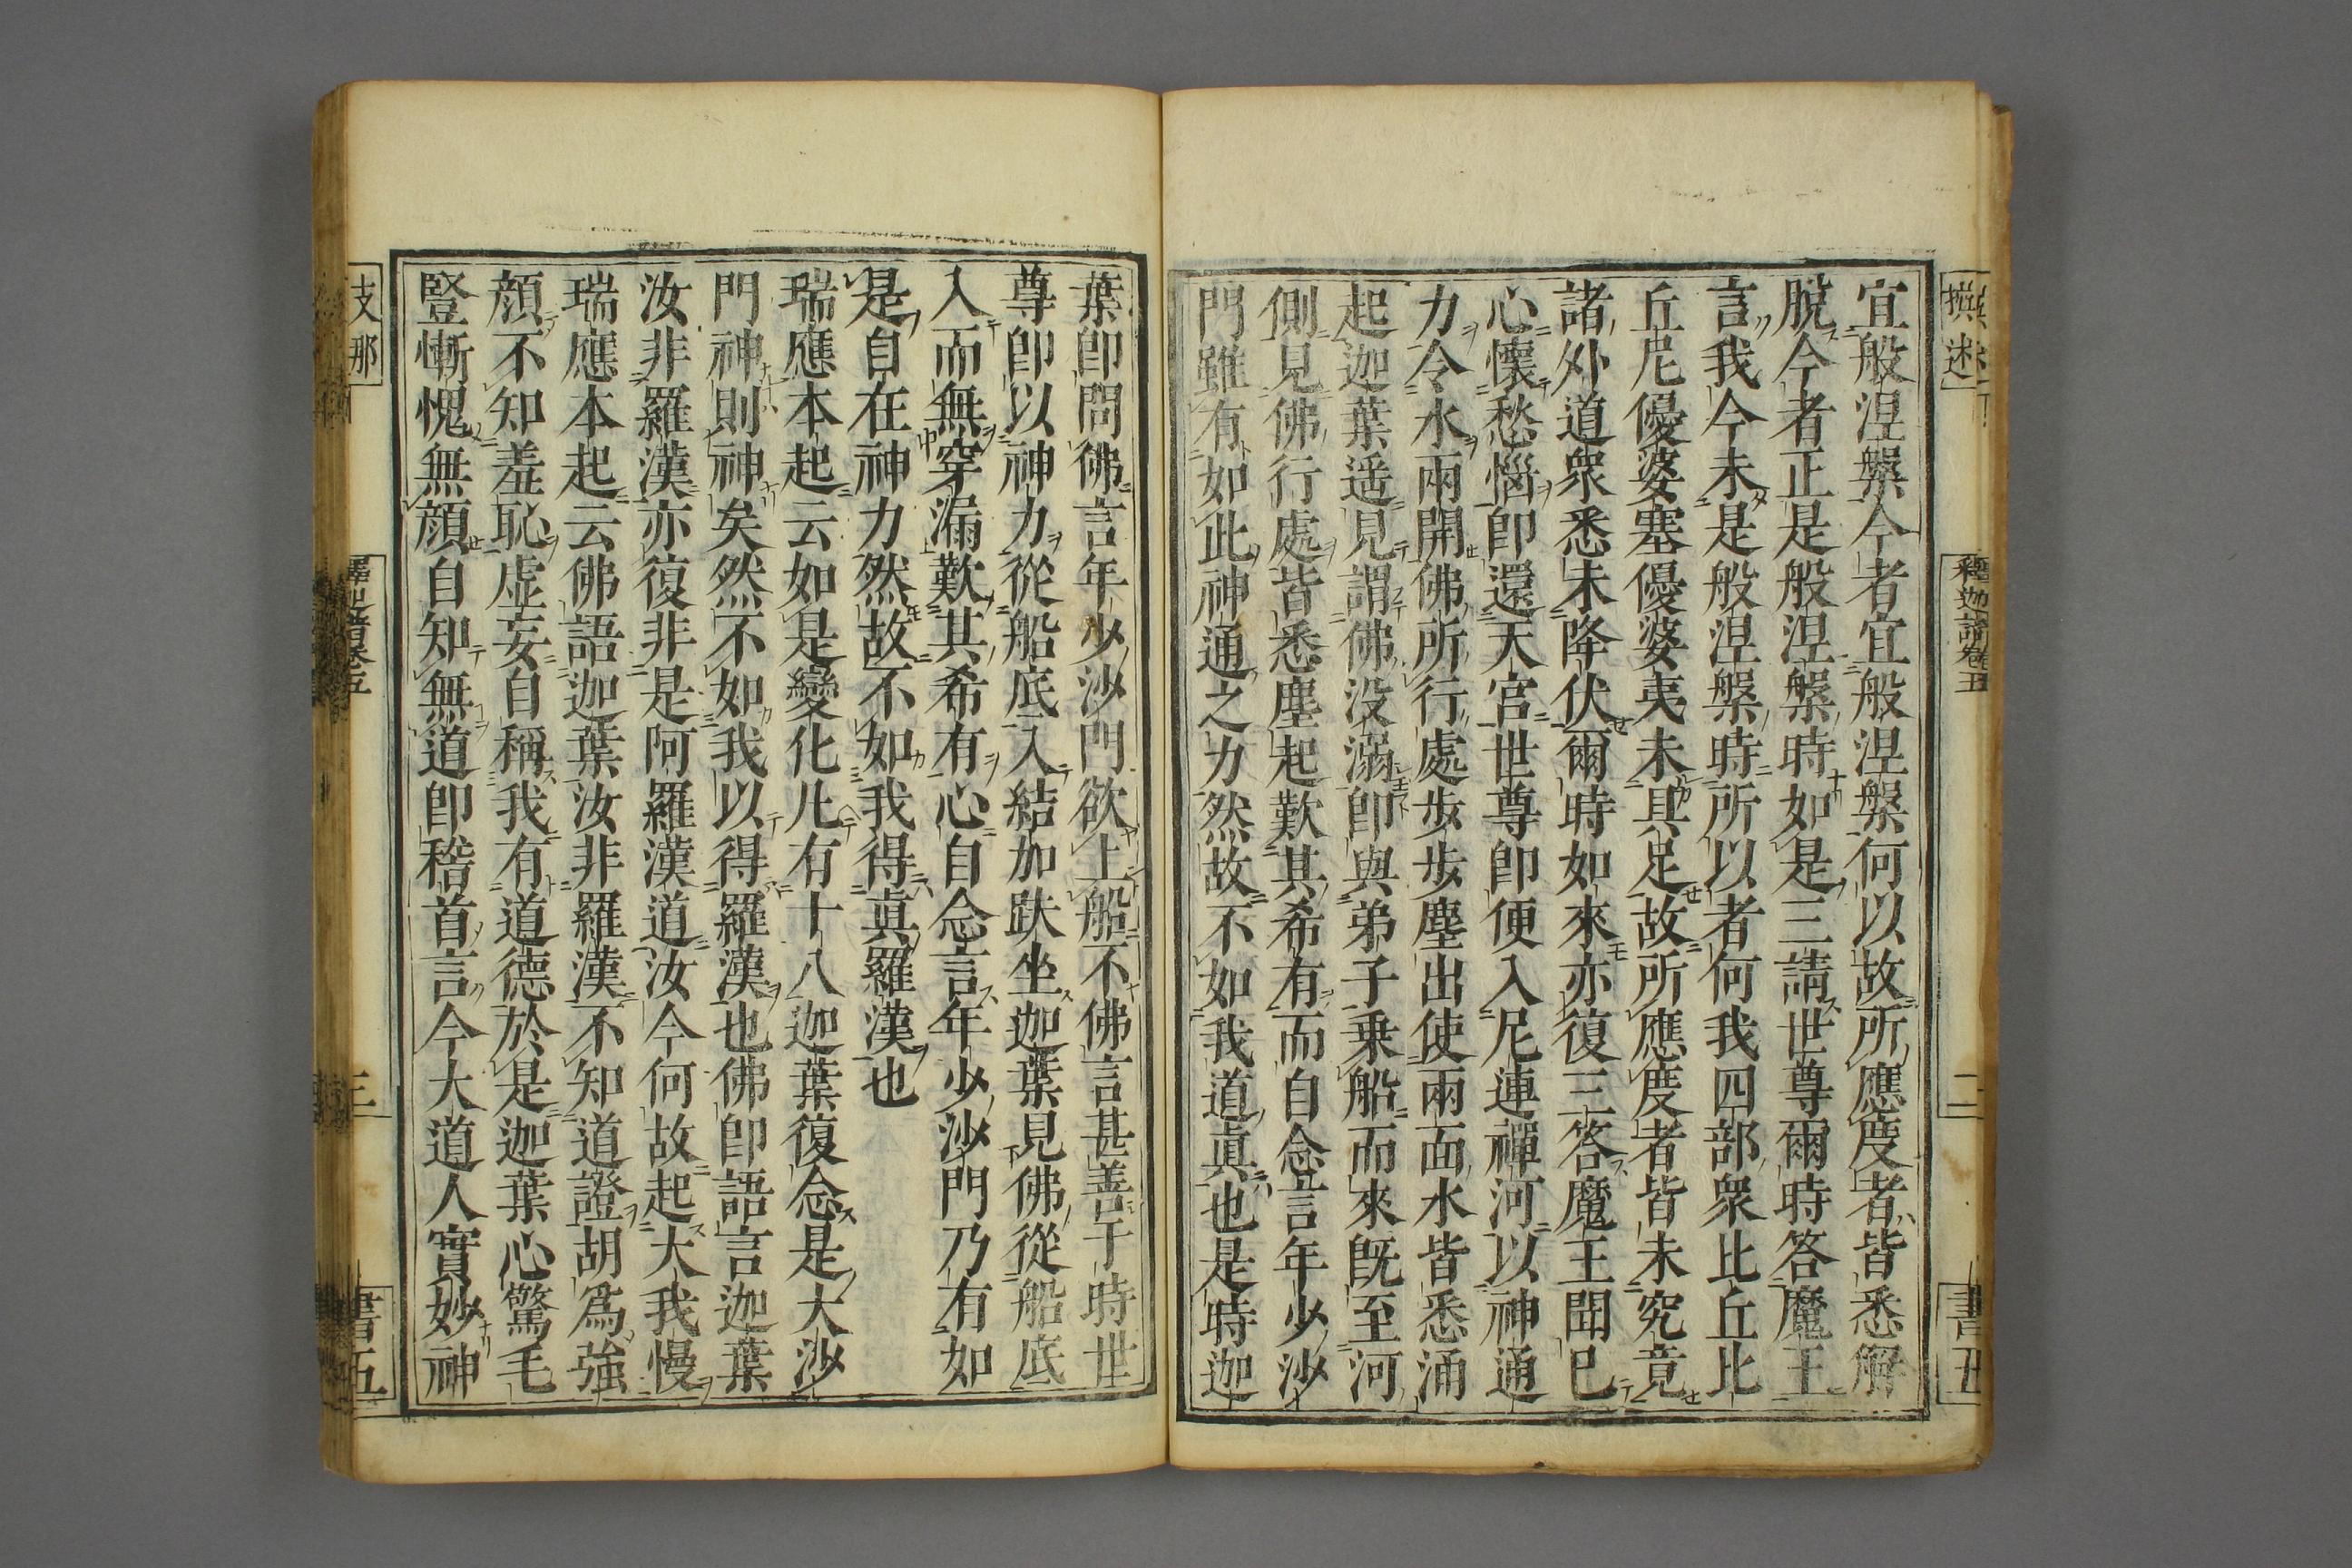 撰述
釋迦譜卷五
二
書五
宜般涅槃今者宜般涅槃何以故所應度者皆悉解
脫今者正是般涅槃時如是三請世尊爾時答魔王
言我今未是般涅槃時所以者何我四部衆比丘比
丘尼優婆塞優婆夷未具足故所應度者皆未究竟
諸外道衆悉未降伏爾時如來亦復三答魔王聞已
心懷愁惱卽還天宮世尊卽便入尼連禪河以神通
力令水兩開佛所行處步步塵出使兩面水皆悉涌
起迦葉遥見謂佛没溺卽與弟子乗船而來旣至河
側見佛行處皆悉塵起歎其希有而自念言年少沙
門雖有如此神通之力然故不如我道眞也是時迦
葉卽問佛言年少沙門欲上船不佛言甚善于時世
尊卽以神力從船底入結加趺坐迦葉見佛從船底
入而無穿漏歎其希有心自念言年少沙門乃有如
是自在神力然故不如我得眞羅漢也
瑞應本起云如是變化凡有十八迦葉復念是大沙
門神則神矣然不如我以得羅漢也佛卽語言迦葉
汝非羅漢亦復非是阿羅漢道汝今何故起大我慢
瑞應本起云佛語迦葉汝非羅漢不知道證胡爲強
顏不知羞恥虚妄自稱我有道德於是迦葉心驚毛
豎慚愧無顏自知無道卽稽首言今大道人實妙神
支那
三
書五